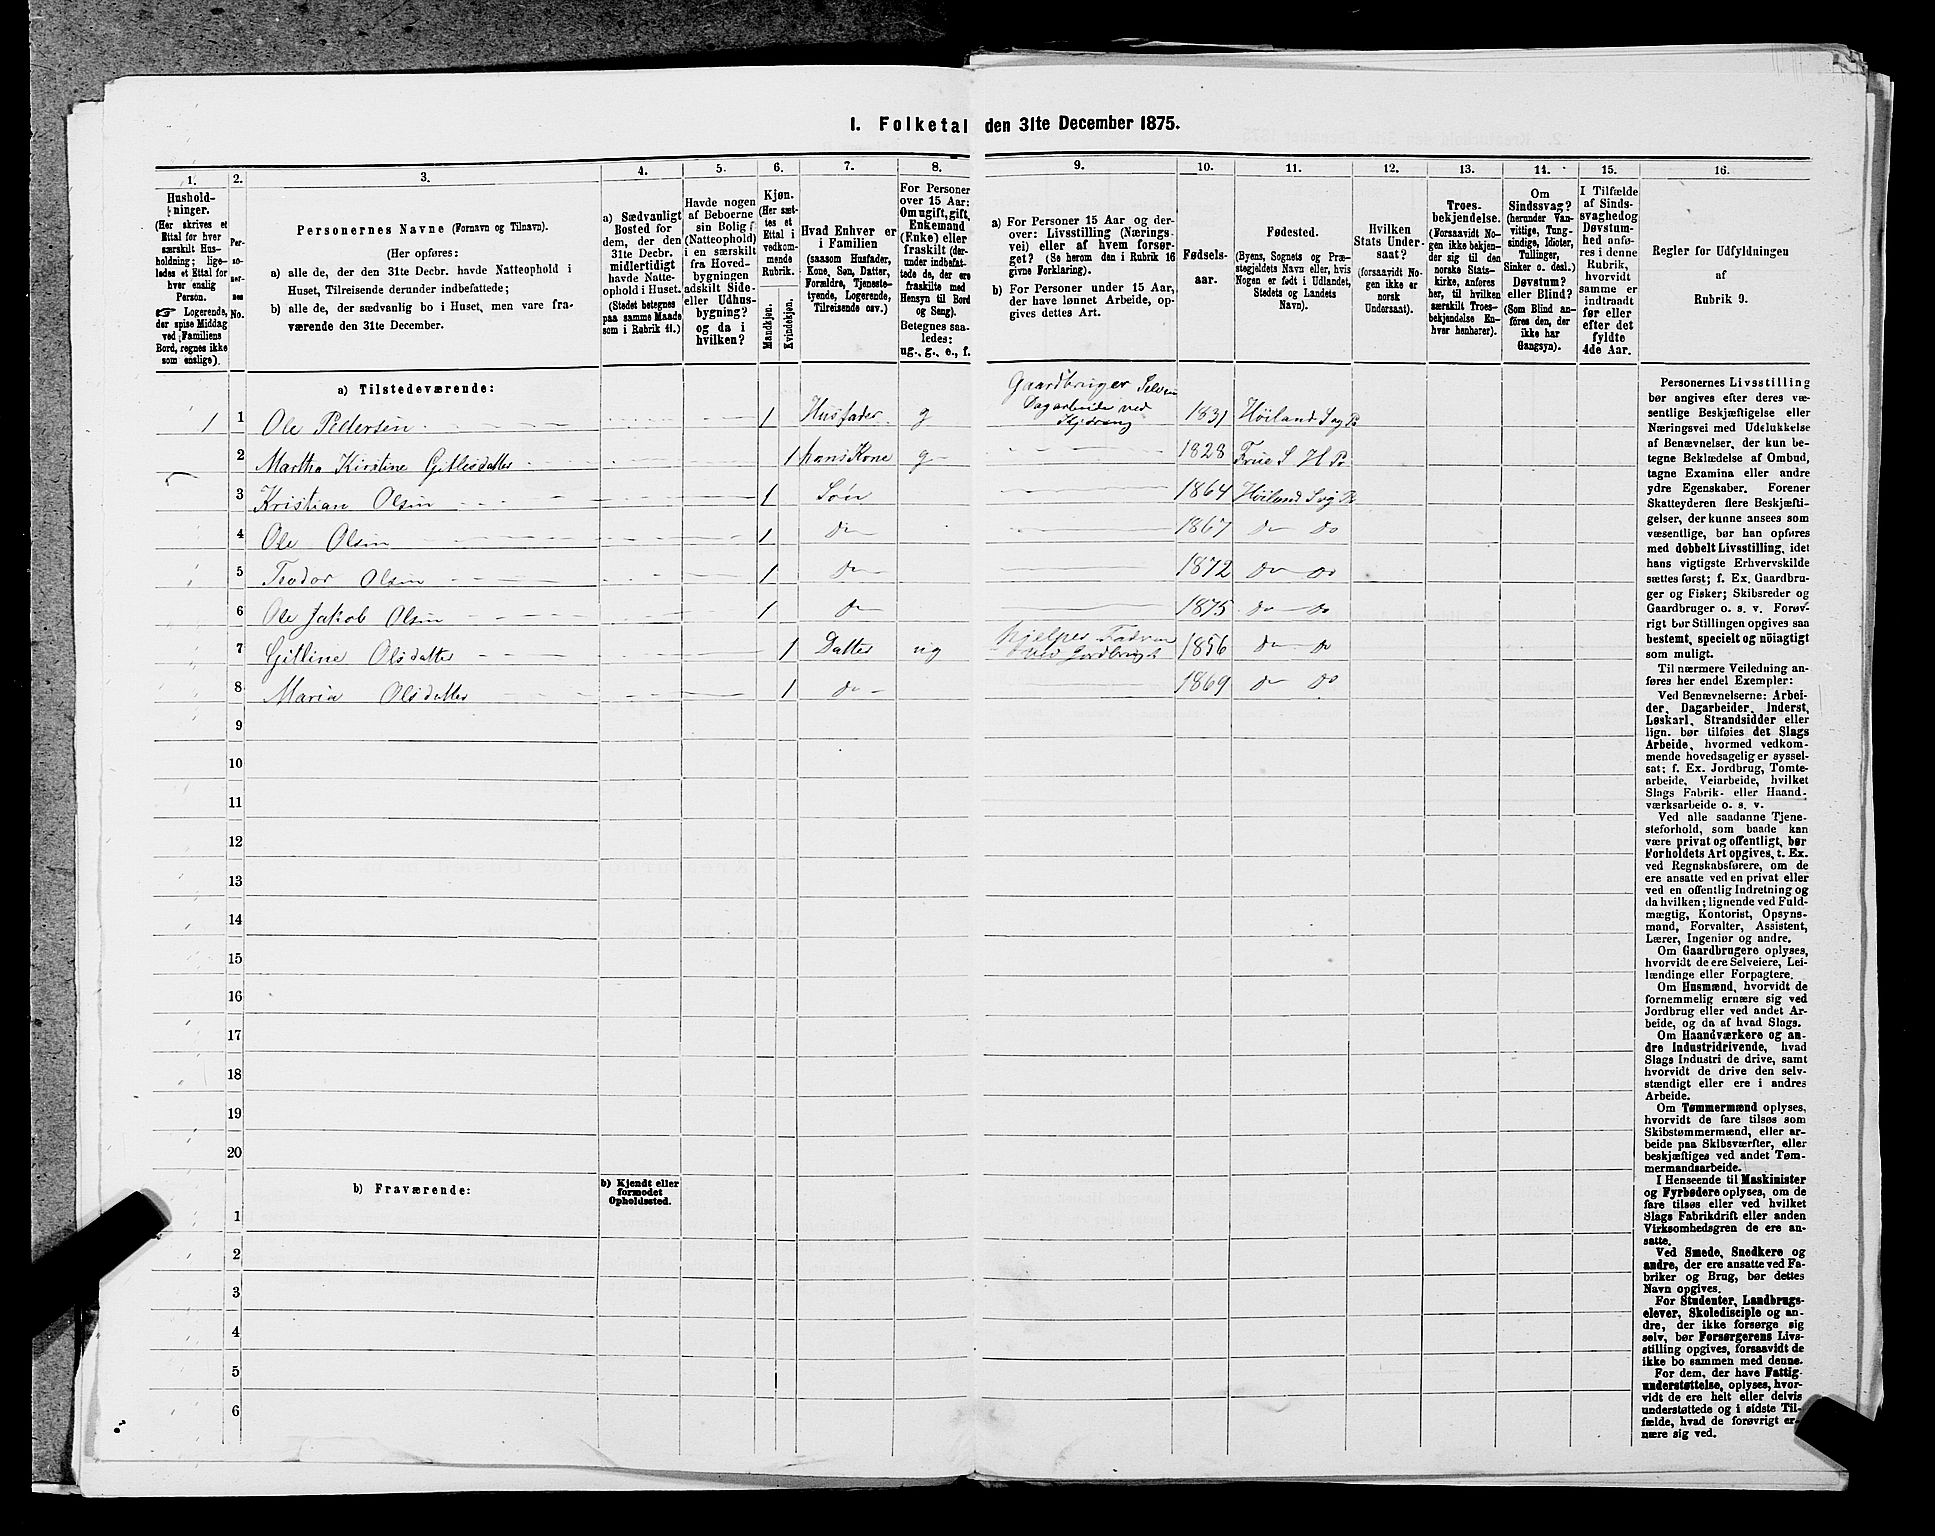 1. Folketal den 31te December 1875.
1.
Hushold-
ninger.
(Her skrives et
Ettal for hver
særskilt Hus-
holdning; lige-
ledes et Ettal for
hver enslig
Person.
☞ Logerende,
der spise Middag
ved Familiens
Bord, regnes ikke
som enslige).
2.
Per-
so-
ner-
nes
No.
3.
Personernes Navne (Fornavn og Tilnavn).
(Her opføres:
a) alle de, der den 31te Decbr. havde Natteophold i
Huset, Tilreisende derunder indbefattede;
b) alle de, der sædvanlig bo i Huset, men vare fra-
værende den 31te December.
4.
a) Sædvanligt
Bosted for
dem, der den
31te Decbr.
midlertidigt
havde Natte-
ophold i Huset.
(Stedet betegnes
paa samme Maade
som i Rubrik 11.)
5.
Havde nogen
af Beboerne
sin Bolig
(Natteophold)
i en særskilt
fra Hoved-
bygningen
adskilt Side-
eller Udhus-
bygning?
og da i
hvilken?
6.
Kjøn.
(Her sæt-
tes et
Ettal i
vedkom-
mende
Rubrik.
Mandkjøn.
Kvindekjøn.
7.
Hvad Enhver er
i Familien
(saasom Husfader,
Kone, Søn, Datter,
Forældre, Tjeneste-
tyende, Logerende,
Tilreisende osv.)
8.
For Personer
over 15 Aar:
Om ugift, gift,
Enkemand
(Enke) eller
fraskilt (der-
under indbefat-
tede de, der ere
fraskilte med
Hensyn til Bord
og Seng).
Betegnes saa-
ledes:
ug., g., e., f.
9.
a) For Personer 15 Aar og der-
over: Livsstilling (Nærings-
vei) eller af hvem forsør-
get? (Se herom den i Rubrik 16
givne Forklaring).
b) For Personer under 15 Aar,
der have lønnet Arbeide, op-
gives dettes Art.
10.
Fødsels-
aar.
11.
Fødested.
(Byens, Sognets og Præ-
stegjeldets Navn eller, hvis
Nogen er født i Udlandet,
Stedets og Landets
Navn).
12.
Hvilken
Stats Under-
saat?
(forsaavidt No-
gen ikke er
norsk
Undersaat).
13.
Troes-
bekjendelse.
(Forsaavidt No-
gen ikke bekjen-
der sig til den
norske Stats-
kirke, anføres
her, til hvilken
særskilt Troes-
bekjendelse En-
hver henhører).
14.
Om
Sindssvag?
(herunder Van-
vittige, Tung-
sindige, Idioter,
Tullinger,
Sinker o. desl.)
Døvstum?
eller Blind?
(Som Blind an-
føres den, der
ikke har
Gangsyn).
15.
I Tilfælde
af Sinds-
svaghed og
Døvstum-
hed anfø-
res i denne
Rubrik,
hvorvidt
samme er
indtraadt
før eller
efter det
fyldte
4de Aar.
16.
Regler for Udfyldningen
af
Rubrik 9.
a) Tilstedeværende:
1 1 Ole Pedersen 1 Husfader g Gaardbruger Selveier Dagarbeide ved 1831 Höiland S og Pr
2 Martha Kirstine Gitlesdatter 1 hans Kone g 1828 Frue S H Pr
3 Kristian Olsen 1 Søn 1864 Höiland S og Pr
4 Ole Olsen 1 do 1867 do do
5 Teodor Olsen 1 do 1872 do do
6 Ole Jakob Olsen 1 do 1875 do do
7 Gitline Olsdatter 1 Datter ug hjelper Faderen ved Jordbruget 1856 do do
8 Maria Olsdatter 1 do 1869 do do
9
10
11
12
13
14
15
16
17
18
19
20
b) Fraværende:
b) Kjendt eller
formodet
Opholdssted.
1
2
3
4
5
6
Personernes Livsstilling
bør angives efter deres væ-
sentlige Beskjæftigelse eller
Næringsvei med Udelukkelse
af Benævnelser, der kun be-
tegne Beklædelse af Ombud,
tagne Examina eller andre
ydre Egenskaber. Forener
Skatteyderen flere Beskjæfti-
gelser, der kunne ansees som
væsentlige, bør han opføres
med dobbelt Livsstilling, idet
hans vigtigste Erhvervskilde
sættes først; f. Ex. Gaardbru-
ger og Fisker; Skibsreder og
Gaardbruger o. s. v. Forøv-
rigt bør Stillingen opgives saa
bestemt, specielt og nöiagtigt
som muligt.
Til nærmere Veiledning an-
føres her endel Exempler:
Ved Benævnelserne: Arbei-
der, Dagarbeider, Inderst,
Løskarl, Strandsidder eller
lign. bør tilføies det Slags
Arbeide, hvormed vedkom-
mende hovedsagelig er syssel-
sat; f. Ex. Jordbrug, Tomte-
arbeide, Veiarbeide, hvilket
Slags Fabrik- eller Haand-
værksarbeide o. s. v.
Ved alle saadanne Tjene-
steforhold, som baade kan
være privat og offentligt, bør
Forholdets Art opgives, t. Ex.
ved Regnskabsførere, om de
ere ansatte ved en privat eller
ved en offentlig Indretning og
da hvilken; lignende ved Fuld-
mægtig, Kontorist, Opsyns-
mand, Forvalter, Assistent,
Lærer, Ingeniør og andre.
Om Gaardbrugere oplyses,
hvorvidt de ere Selveiere, Lei-
lændinge eller Forpagtere.
Om Husmænd, hvorvidt de
fornemmelig ernære sig ved
Jordbrug eller ved andet Ar-
beide, og da af hvad Slags.
Om Haandværkere og an-
dre Industridrivende, hvad
Slags Industri de drive, samt
hvorvidt de drive den selv-
stændigt eller ere i andres
Arbeide.
Om Tømmermænd oplyses,
hvorvidt de fare tilsøs som
Skibstømmermænd, eller ar-
beide paa Skibsværfter, eller
beskjæftiges ved andet Tøm-
mermandsarbeide.
I Henseende til Maskinister
og Fyrbødere oplyses, om de
fare tilsøs eller ved hvilket
Slags Fabrikdrift eller anden
Virksomhedsgren de ere an-
satte.
Ved Smede, Snedkere og
andre, der ere ansatte ved Fa-
briker og Brug, bør dettes
Navn opgives.
For Studenter, Landbrugs-
elever, Skoledisciple og an-
dre, der ikke forsørge sig
selv, bør Forsørgerens Livs-
stilling opgives, forsaavidt de
ikke bo sammen med denne.
For dem, der have Fattig-
understøttelse, oplyses, hvor-
vidt de ere helt eller delvis
understøttede og i sidste Til-
fælde, hvad de forøvrigt er-
nære sig ved.